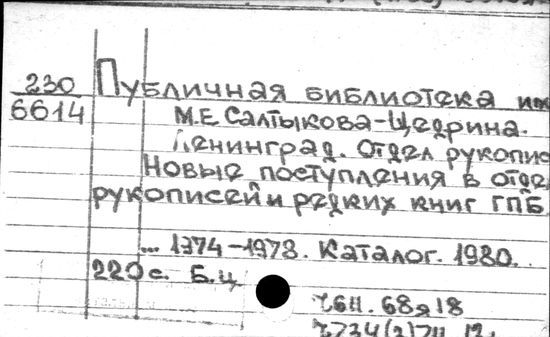 230 Публичная библиотека им
6614 М.Е Салтыкова-Щедрина.
Ленинград. Отдел рукопис
Новые поступления в отде
рукописей и редких книг ГПБ
... 1974-1978. Каталог. 1980.
220 с. Б.ц.
Ч611.68я18
Ч734(2)711.12